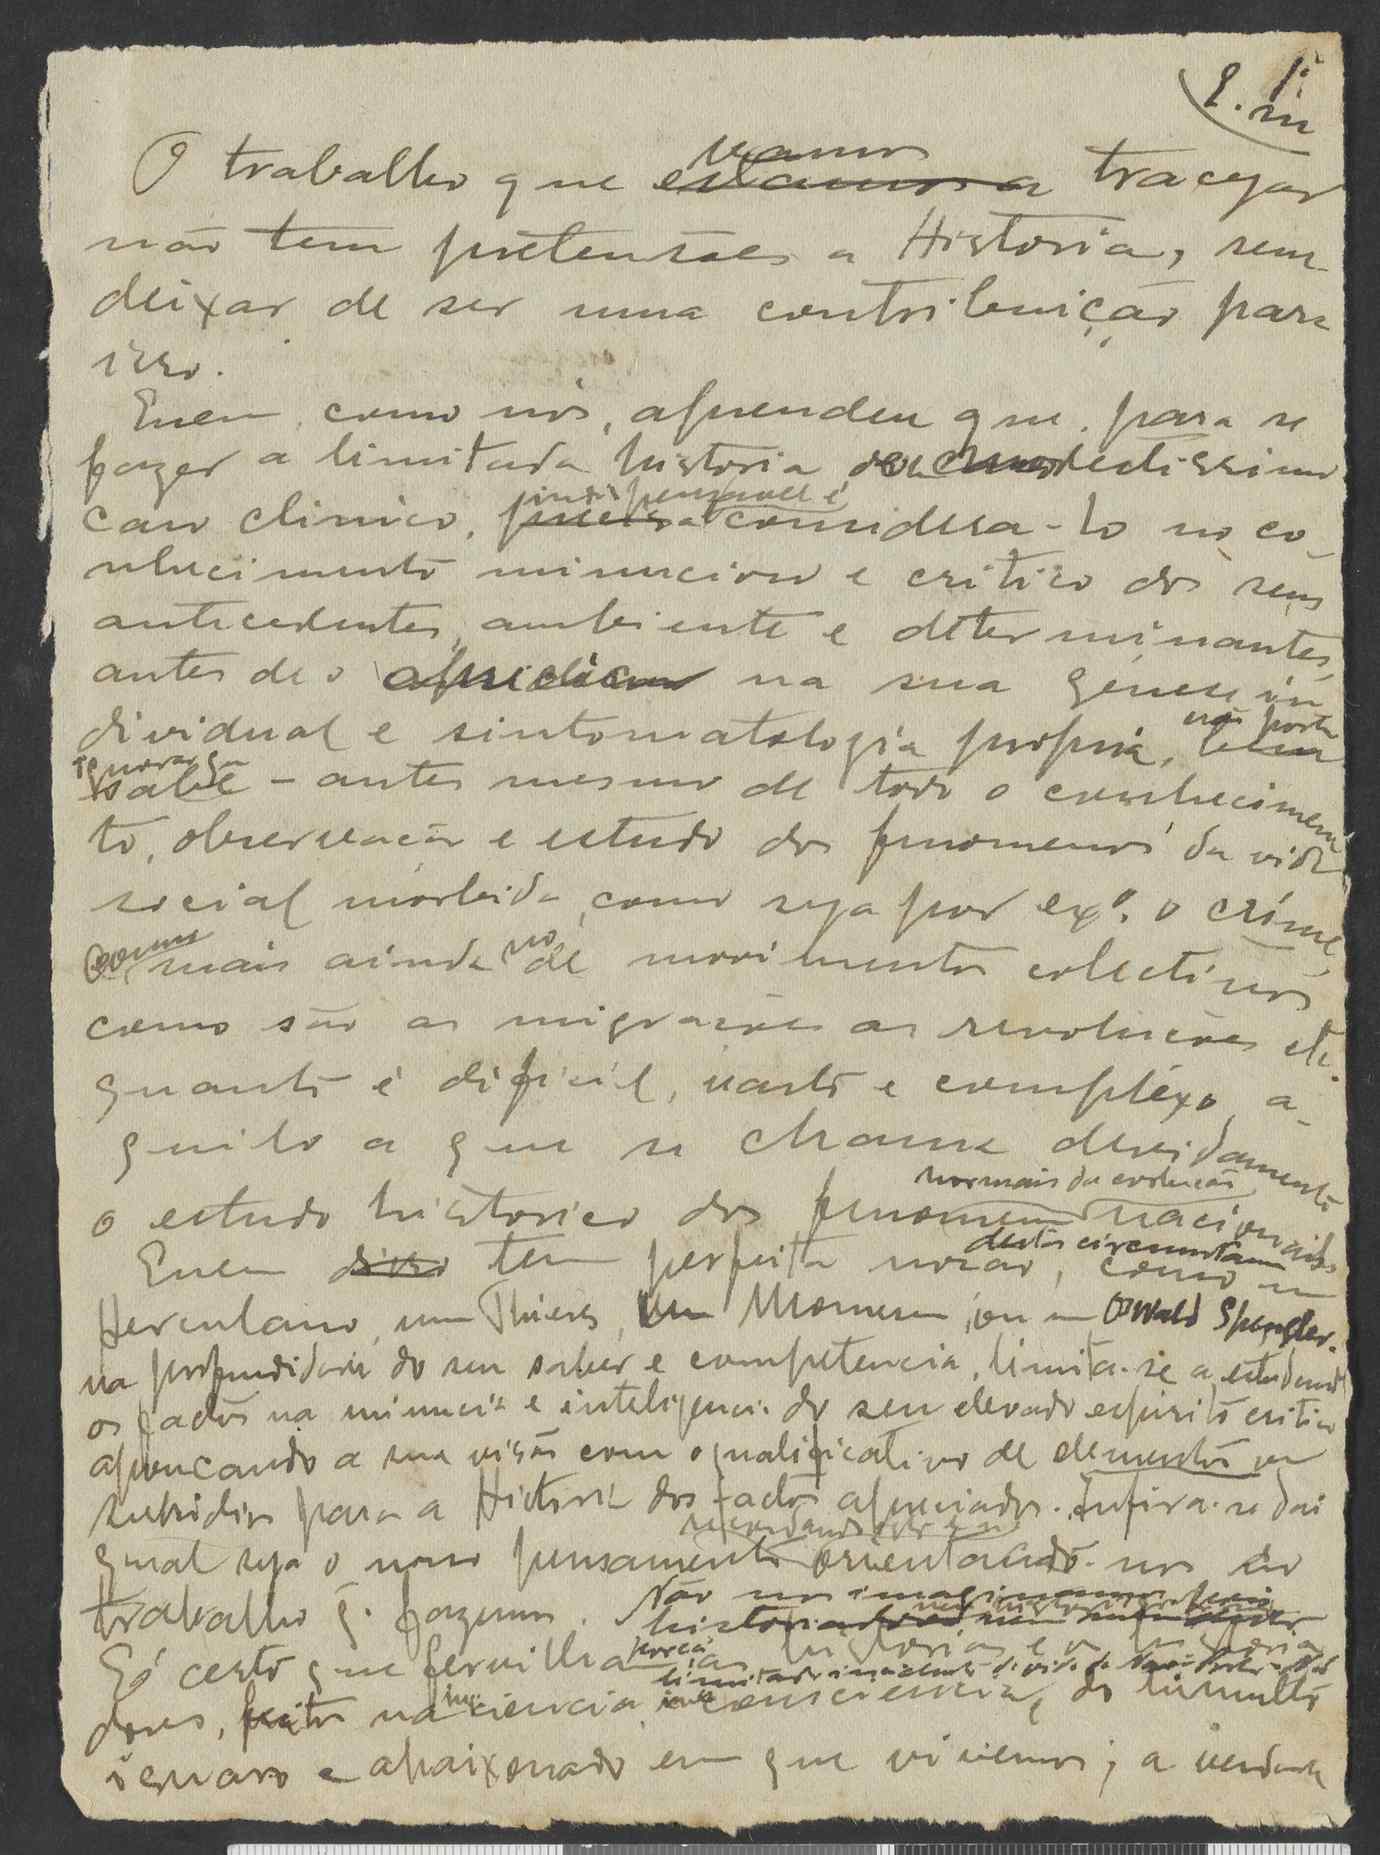 vamos
O trabalho que estamos a traçar
não tem pretensões a Historia, sem
deixar de ser uma contribuição para
isso.
Quem, como nós, aprendeu que, para se
fazer a limitada historia de modestissimo
indispensavel é
caso clinico, considera-lo no co-
nhecimento minucioso e critico dos seus
antecedentes, ambiente e determinantes,
antes de o apreciar na sua génese in-
não pode
dividual e sintomatologia propria, bem
ignorar
sabe – antes mesmo de todo o conhecimen-
to, observação e estudo dos fenomenos da vida
social mórbida, como seja por exº. o crime,
como no
mais ainda de movimentos colectivos
como são as migrações as revoluções etc.
quanto é dificil, vasto e compléxo, a-
quilo a que se chama devidamente
normais da evolução
o estudo historico dos fenomenos nacionais
desta circumstancia
Quem disso tem perfeita noção, como um
Herculano, um Thiers, um Momsen, ou um Oswald Spengler.
na profundidade do seu saber e competencia, limita-se a estudando
os factos na minucia e inteligencia do seu elevado espirito critico
apoucando a sua visão com o qualificativo de elementos ou
subsidios para a Historia dos factos apreciados. Infira-se dai
qual seja o nosso pensamento orientando-nos no
trabalho q. fazemos. Não nos imaginamos
historiadores, nem
Só certo que fervilham historias e
dores, feitos na inciencia e inconsciencia, do tumulto
ignaro e apaixonado em que vivemos; a verdade